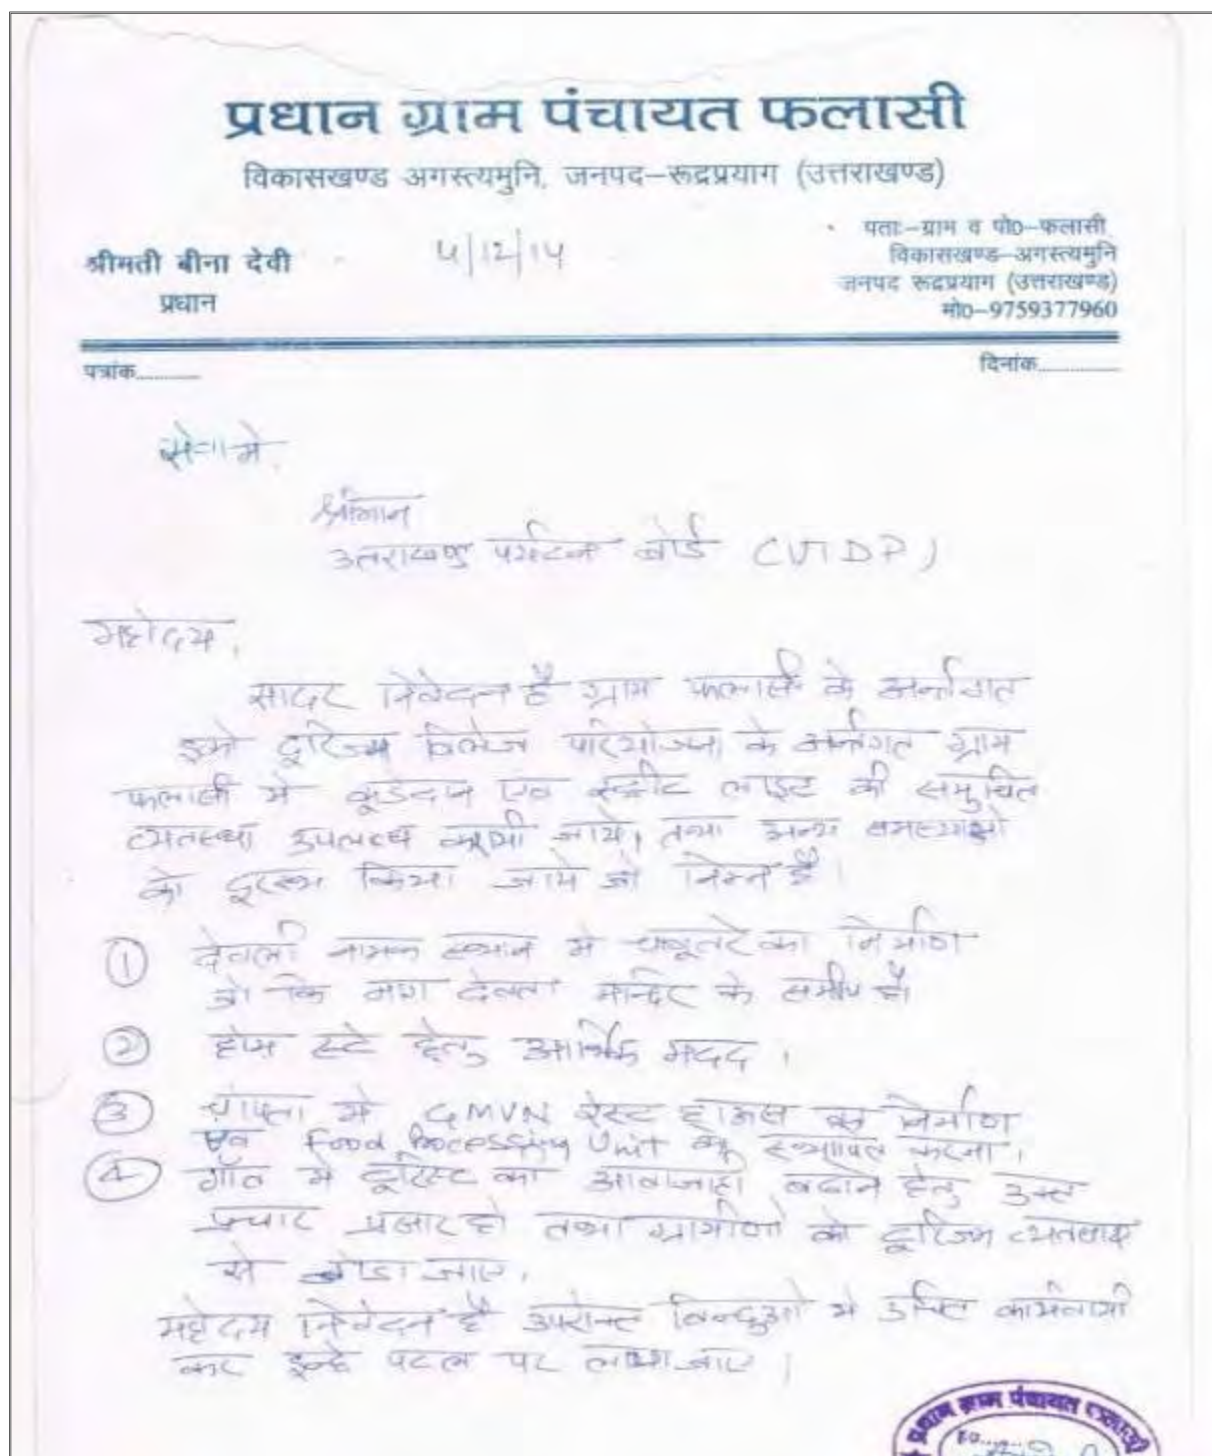 प्रधान ग्राम पंचायत फलासी
विकासखण्ड अगस्त्यमुनि, जनपद–रूद्रप्रयाग (उत्तराखण्ड)
श्रीमती बीना देवी
प्रधान
4/12/14
पताः–ग्राम व पो0–फलासी
विकासखण्ड–अगस्त्यमुनि
जनपद रूदप्रयाग (उत्तराखण्ड)
मो0–9759377960
पत्रांक............
दिनांक...............
सेवा मे,
श्रीमान
उत्तराखण्ड पर्यटन बोर्ड (UTDP)
महोदय,
सादर निवेदन है ग्राम फलासी के अर्न्तगत
टूरिज्म विलेज परियोजना के अर्न्तगत ग्राम
फलासी मे कूडेदान एव स्ट्रीट लाइट की समुचित
व्यवस्था उपलब्ध करायी जाये। तथा अन्य समस्याओ
को दुरस्थ किया जाये जो निम्न है।
① देवली नामक स्थान मे चबूतरे का निर्माण
जो कि नाग देवता मन्दिर के समीप है।
② होम स्टे हेतु आर्थिक मदद।
③ चोपता मे GMVN रेस्ट हाऊस का निर्माण
एव Food Processing Unit को स्थापित करना।
④ गाँव मे टूरिस्ट का आवाजाही बढाने हेतु
प्रचार प्रसार हो तथा ग्रामीणो को टूरिज्म व्यवसाय
से जोडा जाए।
महोदय निवेदन है उपरोक्त बिन्दुओ मे उचित कार्यवायी
कर इन्हे पटल पर लाया जाए।
प्रधान ग्राम पंचायत फलासी